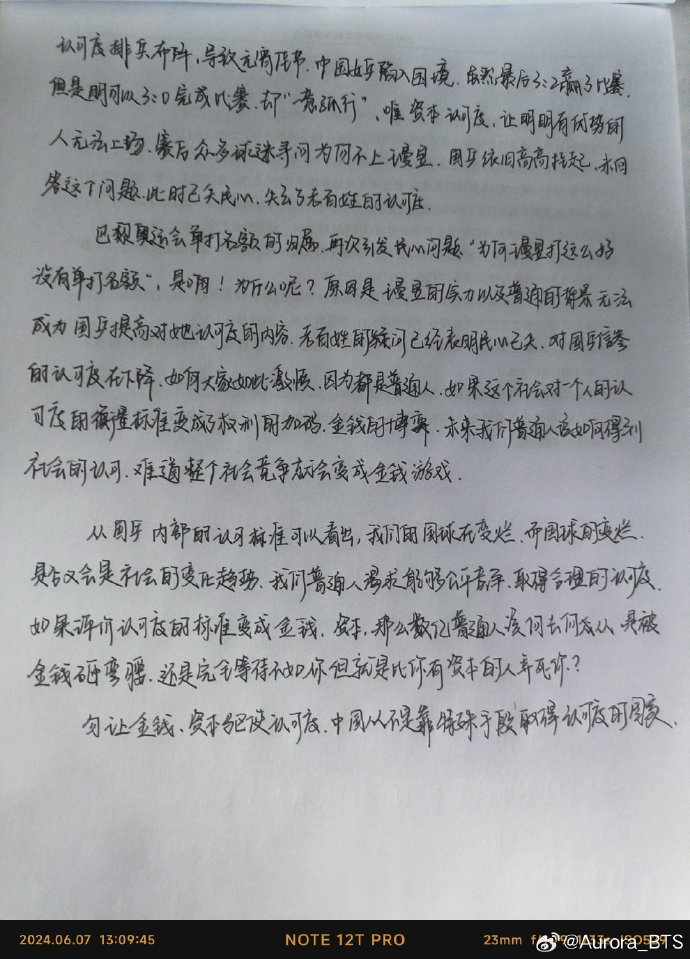 认可度排兵布阵,导致元宵佳节,中国女乒陷入困境.虽然最后3:2赢了比赛,
但是明明可以3:0完成比赛.却"一意孤行",唯资本认可度,让明明有优势的
人无法上场.赛后众多球迷寻问为何不上曼昱.国乒依旧高高挂起,未回
答这个问题.此时已失民心,失去了老百姓的认可度.
巴黎奥运会单打名额的归属,再次引发民心问题"为何曼昱打这么好
没有单打名额",是啊!为什么呢?原因是曼昱的实力以及普通的背景无法
成为国乒提高对她认可度的内容.老百姓的疑问已经表明民心已失.对国乒
的认可度在下降.如何大家如此激愤.因为都是普通人.如果这个社会对一个人的认
可度的衡量标准变成了权利的加码.金钱的博弈.未来我们普通人该如何得到
社会的认可.难道整个社会竞争都会变成金钱游戏.
从国乒内部的认可标准可以看出,我们的国球在变烂.而国球的变烂.
是否又会是社会的变化趋势.我们普通人渴求能够公平竞争.取得合理的认可度.
如果评价认可度的标准变成金钱.资本.那么数亿普通人该何去何从.是被
金钱砸弯腰.还是完全等待不如你但就是比你有资本的人弄死你?
勿让金钱、资本驱使认可度.中国从不是靠特殊手段取得认可度的国家.
2024.06.07 13:09:45
NOTE 12T PRO
23mm
@Aurora_BTS